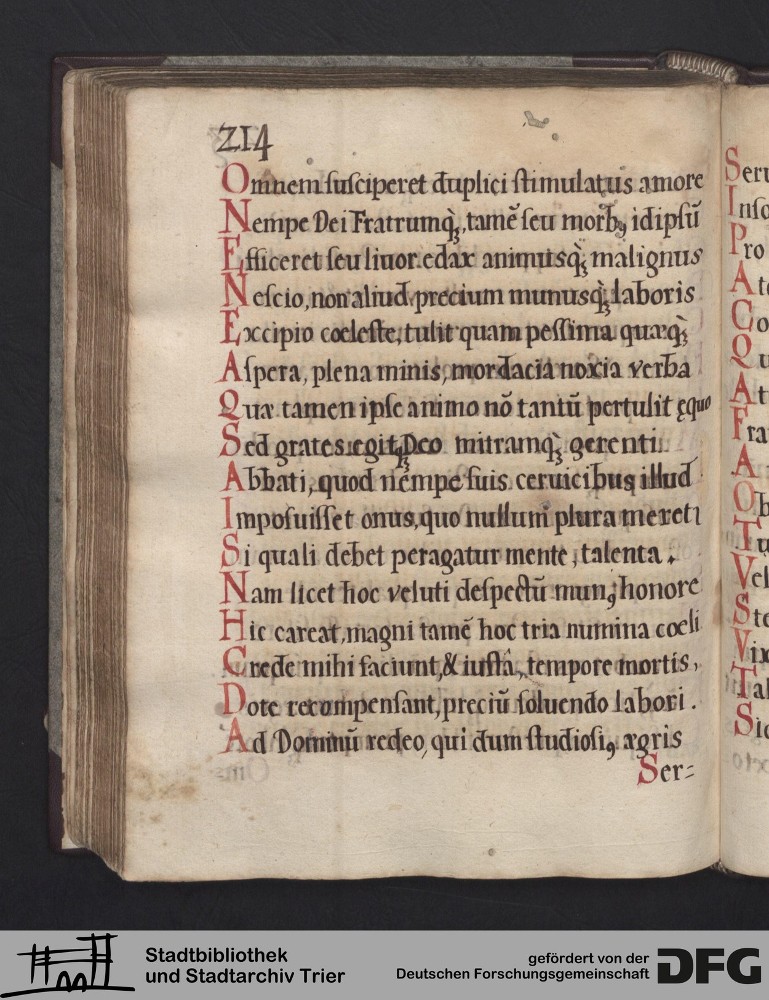 214
Omnem susciperet duplici stimulatus amore
Nempe Dei Fratrumq̨, tamē seu morbꝯ idipsū
Efficeret seu liuor edax animusq̨ malignus
Nescio, non aliud precium munusq̨ laboris
Excipio coeleste, tulit quam pessima quæq̨
Aspera, plena minis, mordacia noxia verba
Quæ tamen ipse animo nō tantū pertulit ęquo
Sed grates egit Deo mitramq̨ gerenti.
Abbati, quod nempe suis ceruicibus illud
Imposuisset onus, quo nullum plura mereri
Si quali debet peragatur mente, talenta.
Nam licet hoc veluti despectū munꝯ, honore
Hic careat, magni tamē hoc tria numina coeli
Crede mihi faciunt, & iustâ, tempore mortis,
Dote recompensant, preciū soluendo labori.
Ad Dominū redeo, qui dum studiosiꝯ ægris
Ser=
Seru
Inso
Pro
A
Co
Qu
At
Fra
A
Ob
Tu
Vel
Ste
Vix
Tal
Sic
Stadtbibliothek
und Stadtarchiv Trier
gefördert von der
Deutschen Forschungsgemeinschaft
DFG